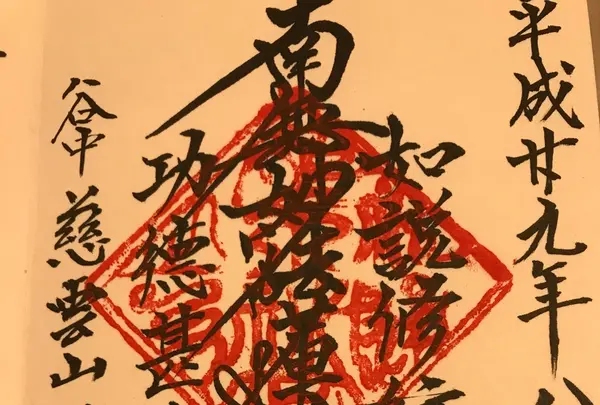 平成廿九年八
如説修行
南無妙法蓮
功徳甚
谷中 慈雲山